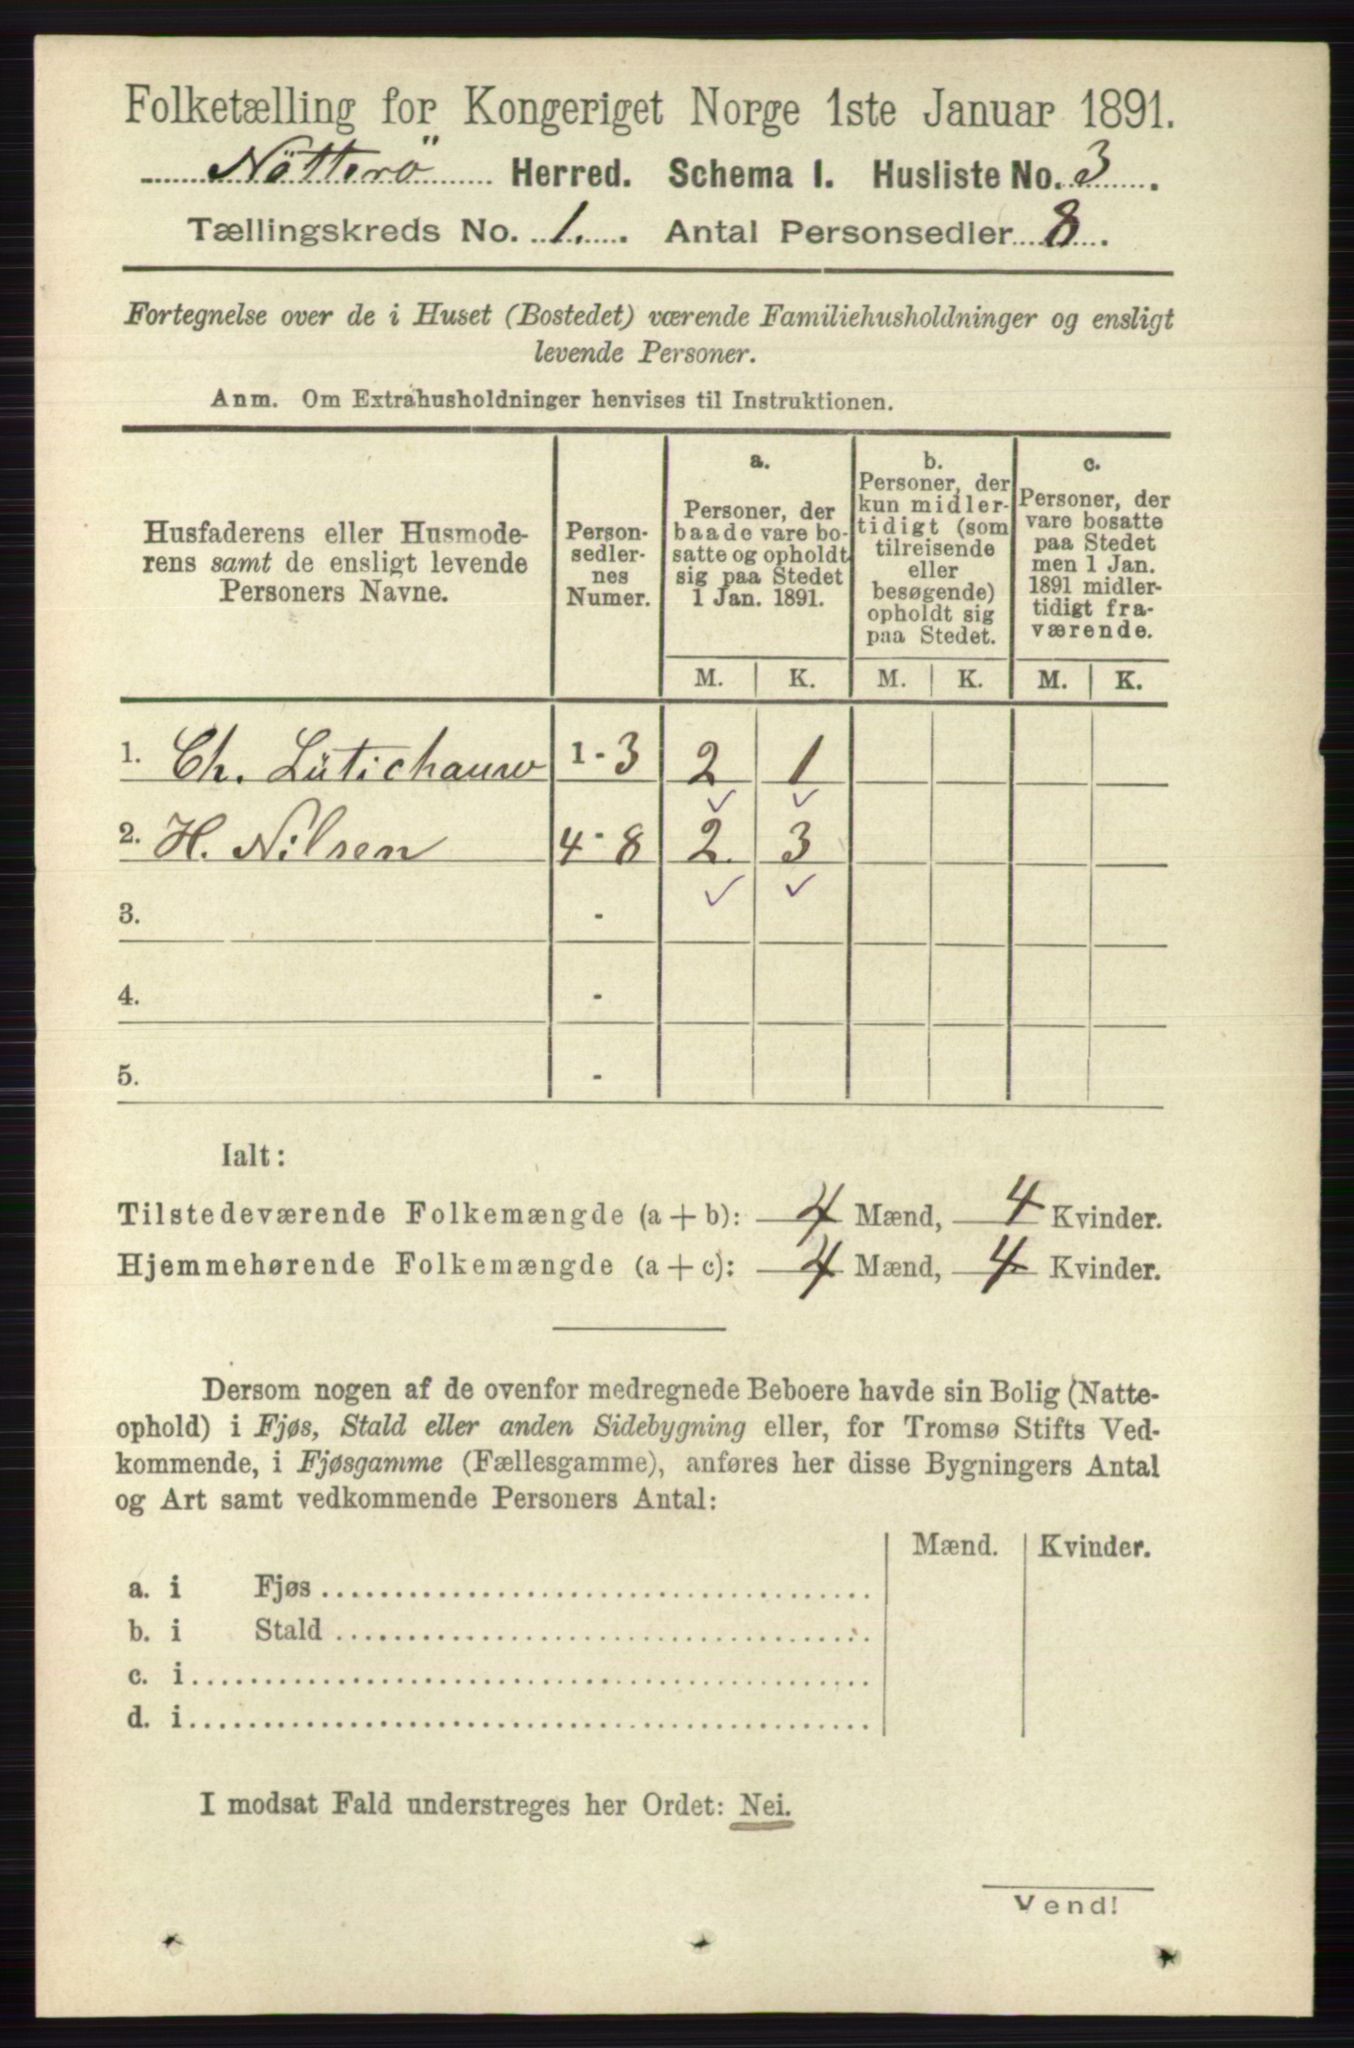 Folketælling for Kongeriget Norge 1ste Januar 1891.
Nötterö Herred. Schema I. Husliste No. 3.
Tællingskreds No. 1. Antal Personsedler 8.
Fortegnelse over de i Huset (Bostedet) værende Familiehusholdninger og ensligt
levende Personer.
Anm. Om Extrahusholdninger henvises til Instruktionen.
Husfaderens eller Husmode-
rens samt de ensligt levende
Personers Navne.
Person-
sedler-
nes
Numer.
a.
Personer, der
baade vare bo-
satte og opholdt
sig paa Stedet
1 Jan. 1891.
b.
Personer, der
kun midler-
tidigt (som
tilreisende
eller
besøgende)
opholdt sig
paa Stedet.
c.
Personer, der
vare bosatte
paa Stedet
men 1 Jan.
1891 midler-
tidigt fra-
værende.
M. K. M. K. M. K.
1. Ch. 1-3 2 1
2. H. Nilsen 4-8 2 3
3. -
4. -
5. -
Ialt:
Tilstedeværende Folkemængde (a + b): 4 Mænd, 4 Kvinder.
Hjemmehørende Folkemængde (a + c): 4 Mænd, 4 Kvinder.
Dersom nogen af de ovenfor medregnede Beboere havde sin Bolig (Natte-
ophold) i Fjøs, Stald eller anden Sidebygning eller, for Tromsø Stifts Ved-
kommende, i Fjøsgamme (Fællesgamme), anføres her disse Bygningers Antal
og Art samt vedkommende Personers Antal:
Mænd. Kvinder.
a. i Fjøs
b. i Stald
c. i
d. i
I modsat Fald understreges her Ordet: Nei.
Vend!